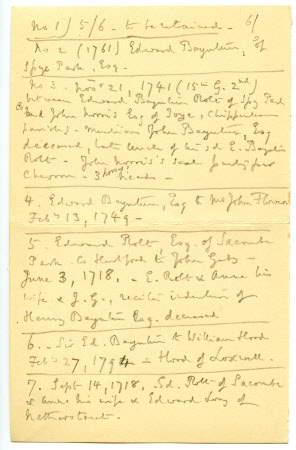 No 1) 5/6 - to be retained - 6/
No 2 (1761) Edward Bayntun, of
Spye Park. Esq.
No 3. Novr 21, 1741 (15th G. 2nd)
between Edward Bayntun Rolt of Spy Park
and John Norris Esq of Ivye, Chippenham
parish - mentions John Bayntun, Esq
deceased, late uncle of the sd E. Bayntun
Rolt - John Norris's seal
Chevron - 3 heads -
4. Edward Bayntun, Esq to Mr John
Feby 13, 1749 -
5. Edward Rolt Esq. of Sacombe
Park. Co Hertford to John
June 3, 1718, - E. Rolt & Anne his
wife & J. G., recites indenture of
Henry Bayntun Esq. deceased
6. - Sir Ed. Bayntun to William Hood
Feby 27, 1794 - Hood of
7. Sept 14, 1718. Ed. Rolt of Sacombe
& Anne his wife & Edward Long of
Netherstreet.